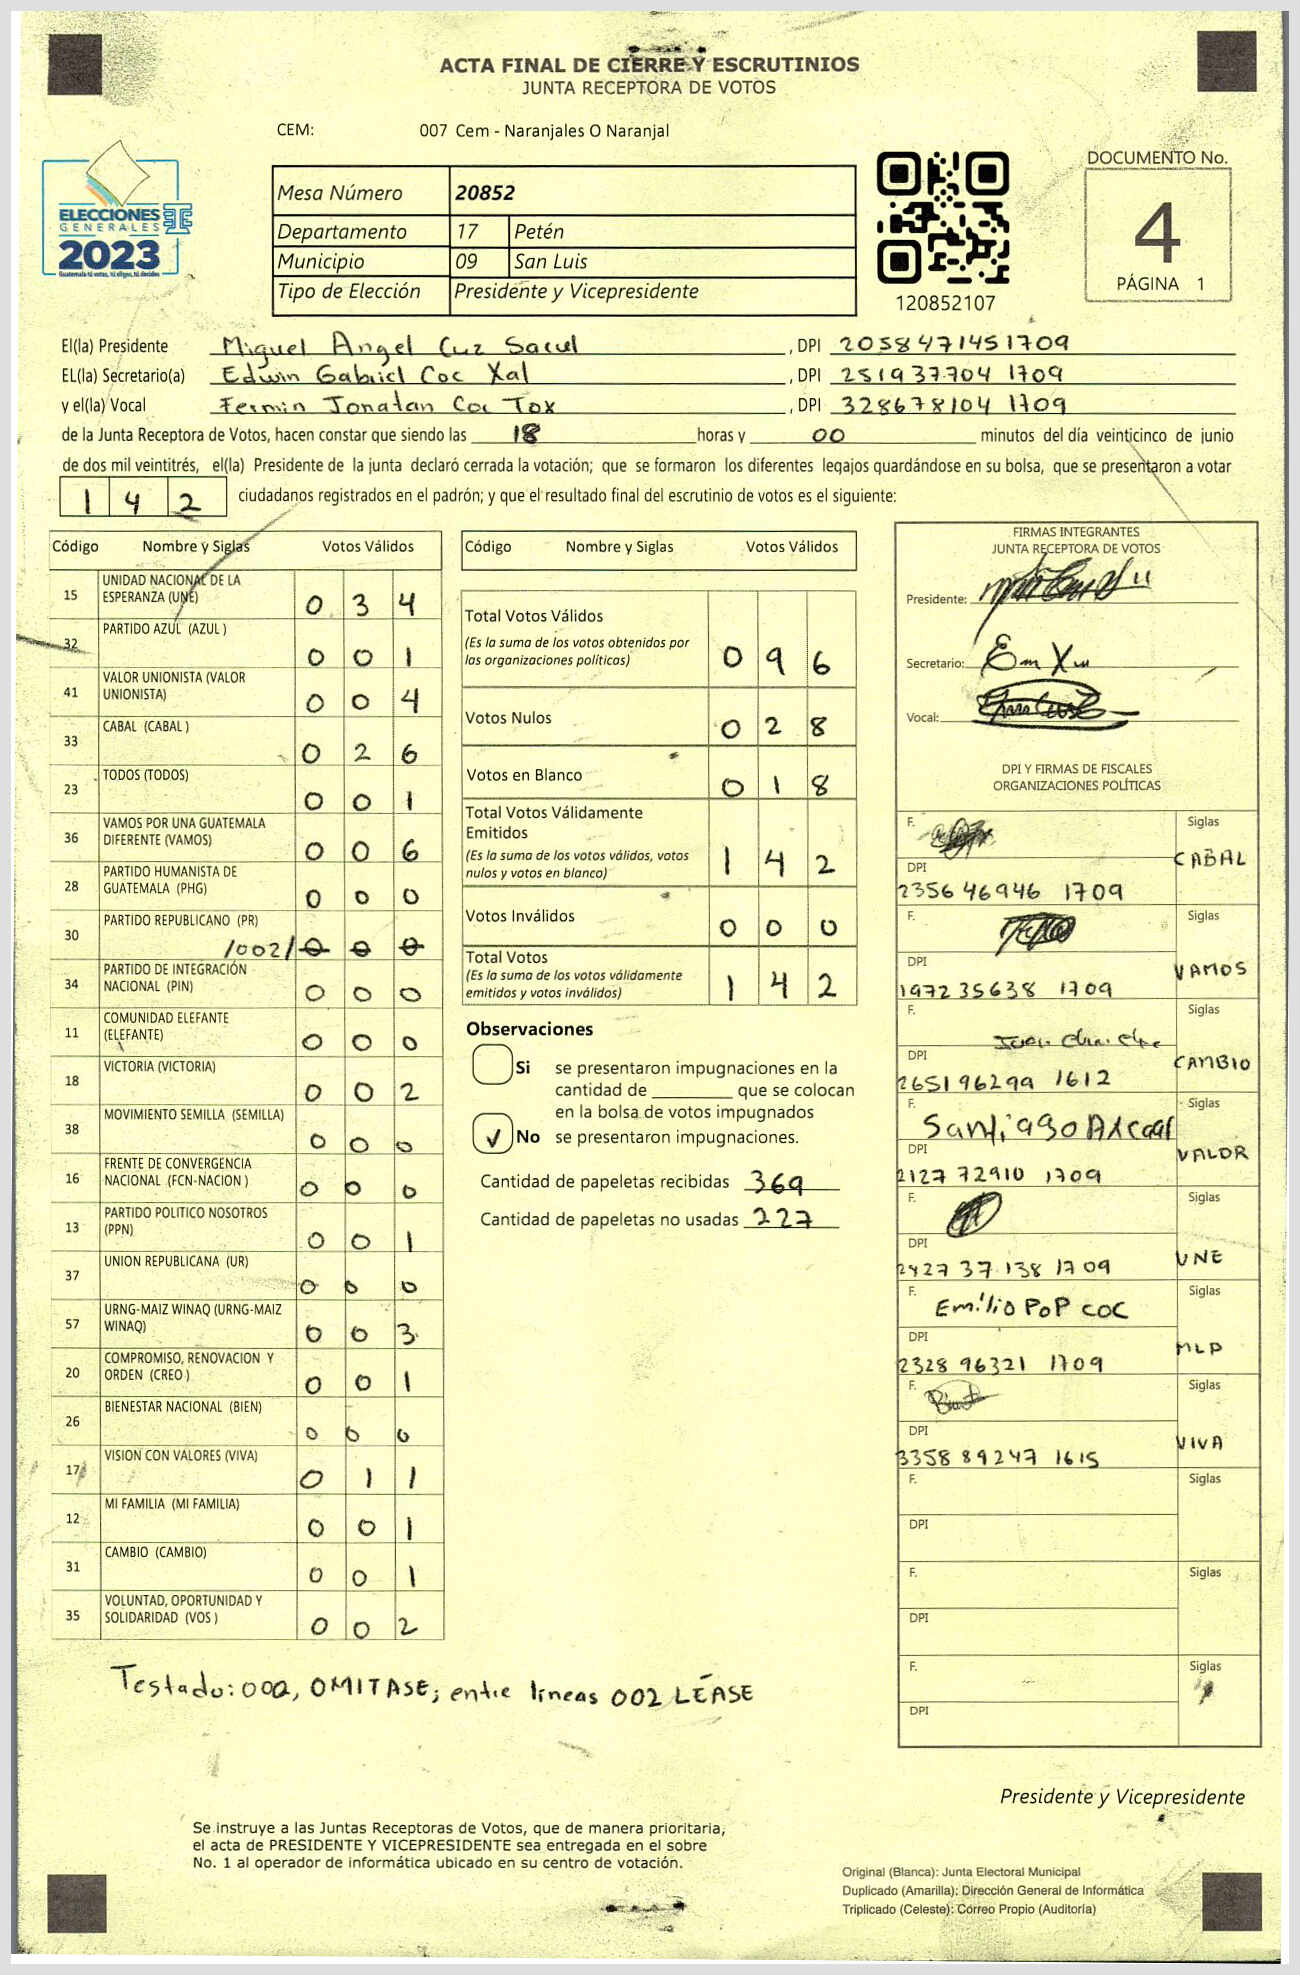 ACTA FINAL DE CIERRE Y ESCRUTINIOS
JUNTA RECEPTORA DE VOTOS
CEM: 007 Cem - Naranjales O Naranjal
ELECCIONES
GENERALES
2023
Guatemala tú votas, tú eliges, tú decides
Mesa Número 20852
Departamento 17 Petén
Municipio 09 San Luis
Tipo de Elección Presidente y Vicepresidente
120852107
DOCUMENTO No.
4
PÁGINA 1
El(la) Presidente Miguel Angel Cuz Sacul , DPI 2058471451709
EL(la) Secretario(a) Edwin Gabriel Coc Xal , DPI 251937704 1709
y el(la) Vocal Fermin Jonatan Coc Tox , DPI 328678104 1709
de la Junta Receptora de Votos, hacen constar que siendo las 18 horas y 00 minutos del día veinticinco de junio
de dos mil veintitrés, el(la) Presidente de la junta declaró cerrada la votación; que se formaron los diferentes legajos guardándose en su bolsa, que se presentaron a votar
1 4 2 ciudadanos registrados en el padrón; y que el resultado final del escrutinio de votos es el siguiente:
Código Nombre y Siglas Votos Válidos
15 UNIDAD NACIONAL DE LA ESPERANZA (UNE) 0 3 4
32 PARTIDO AZUL (AZUL ) 0 0 1
41 VALOR UNIONISTA (VALOR UNIONISTA) 0 0 4
33 CABAL (CABAL ) 0 2 6
23 TODOS (TODOS) 0 0 1
36 VAMOS POR UNA GUATEMALA DIFERENTE (VAMOS) 0 0 6
28 PARTIDO HUMANISTA DE GUATEMALA (PHG) 0 0 0
30 PARTIDO REPUBLICANO (PR) /002/ 0 0 0
34 PARTIDO DE INTEGRACIÓN NACIONAL (PIN) 0 0 0
11 COMUNIDAD ELEFANTE (ELEFANTE) 0 0 0
18 VICTORIA (VICTORIA) 0 0 2
38 MOVIMIENTO SEMILLA (SEMILLA) 0 0 0
16 FRENTE DE CONVERGENCIA NACIONAL (FCN-NACION ) 0 0 0
13 PARTIDO POLITICO NOSOTROS (PPN) 0 0 1
37 UNION REPUBLICANA (UR) 0 0 0
57 URNG-MAIZ WINAQ (URNG-MAIZ WINAQ) 0 0 3
20 COMPROMISO, RENOVACION Y ORDEN (CREO ) 0 0 1
26 BIENESTAR NACIONAL (BIEN) 0 0 0
17 VISION CON VALORES (VIVA) 0 1 1
12 MI FAMILIA (MI FAMILIA) 0 0 1
31 CAMBIO (CAMBIO) 0 0 1
35 VOLUNTAD, OPORTUNIDAD Y SOLIDARIDAD (VOS ) 0 0 2
Código Nombre y Siglas Votos Válidos
Total Votos Válidos
(Es la suma de los votos obtenidos por
las organizaciones políticas) 0 9 6
Votos Nulos 0 2 8
Votos en Blanco 0 1 8
Total Votos Válidamente
Emitidos
(Es la suma de los votos válidos, votos
nulos y votos en blanco) 1 4 2
Votos Inválidos 0 0 0
Total Votos
(Es la suma de los votos válidamente
emitidos y votos inválidos) 1 4 2
Observaciones
Si se presentaron impugnaciones en la
cantidad de ________ que se colocan
en la bolsa de votos impugnados
✓ No se presentaron impugnaciones.
Cantidad de papeletas recibidas 369
Cantidad de papeletas no usadas 227
FIRMAS INTEGRANTES
JUNTA RECEPTORA DE VOTOS
Presidente:
Secretario:
Vocal:
DPI Y FIRMAS DE FISCALES
ORGANIZACIONES POLÍTICAS
F. Siglas
DPI CABAL
2356 46946 1709
F. Siglas
DPI VAMOS
1972 35638 1709
F. Siglas
DPI CAMBIO
2651 96299 1612
F. Santiago Siglas
DPI VALOR
2127 72910 1709
F. Siglas
DPI UNE
2427 37 138 1709
F. Emilio POP COC Siglas
DPI MLP
2328 96321 1709
F. Siglas
DPI VIVA
3358 89247 1615
F. Siglas
DPI
F. Siglas
DPI
F. Siglas
DPI
Testado: 000, OMITASE; entre lineas 002 LÉASE
Presidente y Vicepresidente
Se instruye a las Juntas Receptoras de Votos, que de manera prioritaria,
el acta de PRESIDENTE Y VICEPRESIDENTE sea entregada en el sobre
No. 1 al operador de informática ubicado en su centro de votación.
Original (Blanca): Junta Electoral Municipal
Duplicado (Amarilla): Dirección General de Informática
Triplicado (Celeste): Correo Propio (Auditoría)